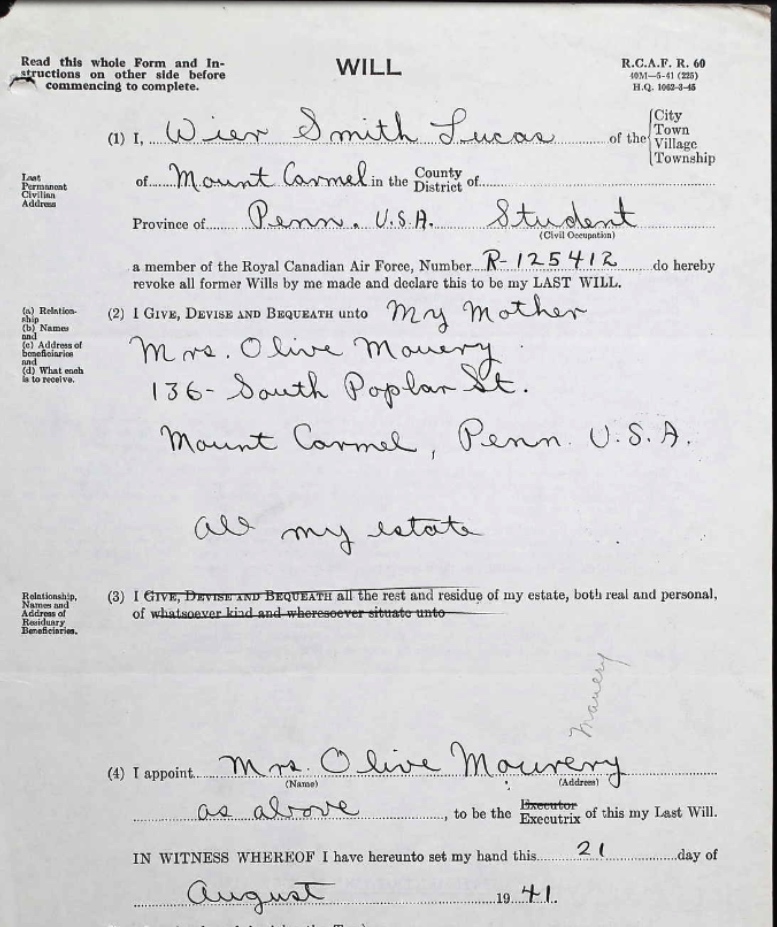 Read this whole Form and In-
structions on other side before
commencing to complete.
WILL
R.C.A.F. R. 60
40M—5-41 (225)
H.Q. 1062-3-45
(1) I, Wier Smith Lucas of the { City Town Village Township
Last Permanent Civilian Address
of Mount Carmel in the County District of
Province of Penn. U.S.A. Student
(Civil Occupation)
a member of the Royal Canadian Air Force, Number R-125412 do hereby
revoke all former Wills by me made and declare this to be my LAST WILL.
(a) Relation-
ship
(b) Names
and
(c) Address of
beneficiaries
and
(d) What each
is to receive.
(2) I GIVE, DEVISE AND BEQUEATH unto My Mother
Mrs. Olive Mouery
136- South Poplar St.
Mount Carmel, Penn. U.S.A.
all my estate
Relationship,
Names and
Address of
Residuary
Beneficiaries.
(3) I GIVE, DEVISE AND BEQUEATH all the rest and residue of my estate, both real and personal,
of whatsoever kind and wheresoever situate unto
(4) I appoint Mrs. Olive Mourery
(Name) (Address)
as above, to be the Executor Executrix of this my Last Will.
IN WITNESS WHEREOF I have hereunto set my hand this 21 day of
August 19 41.